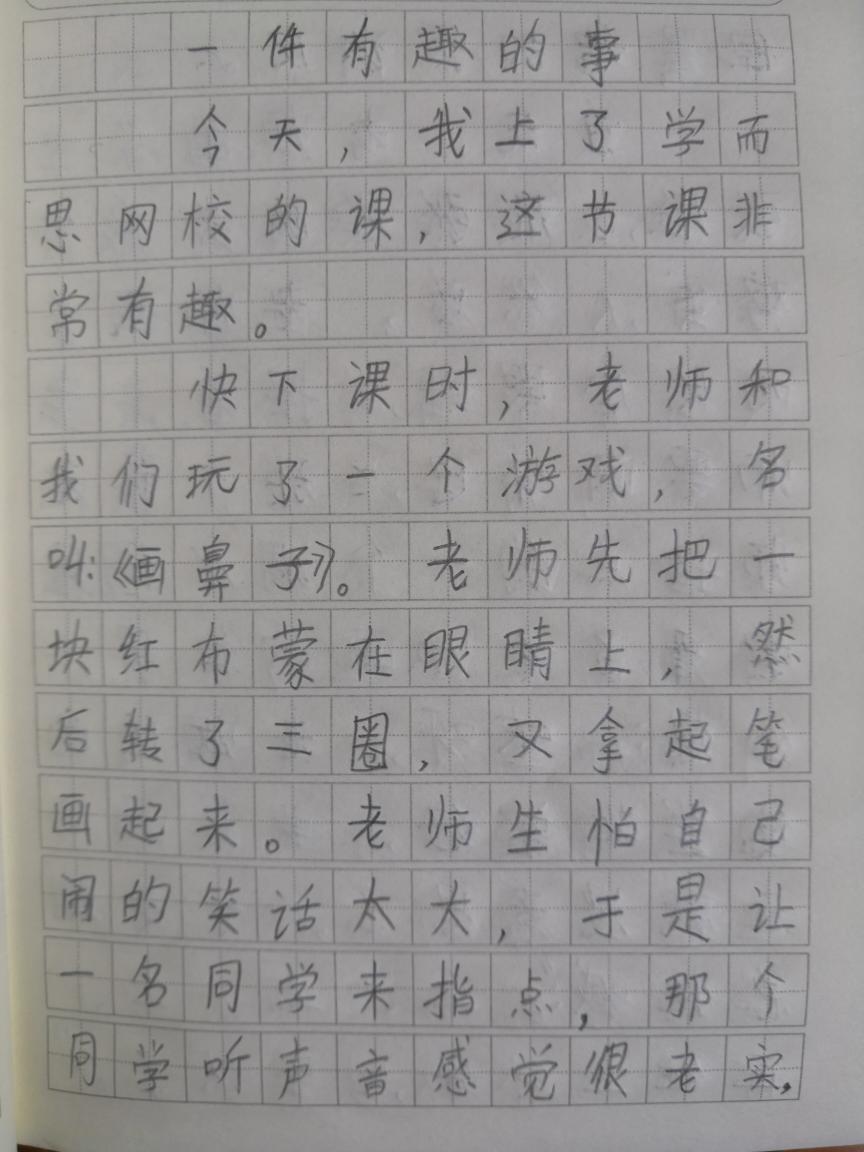 一件有趣的事
今天，我上了学而
思网校的课，这节课非
常有趣。
快下课时，老师和
我们玩了一个游戏，名
叫：《画鼻子》。老师先把一
块红布蒙在眼睛上，然
后转了三圈，又拿起笔
画起来。老师生怕自己
闹的笑话太大，于是让
一名同学来指点，那个
同学听声音感觉很老实，